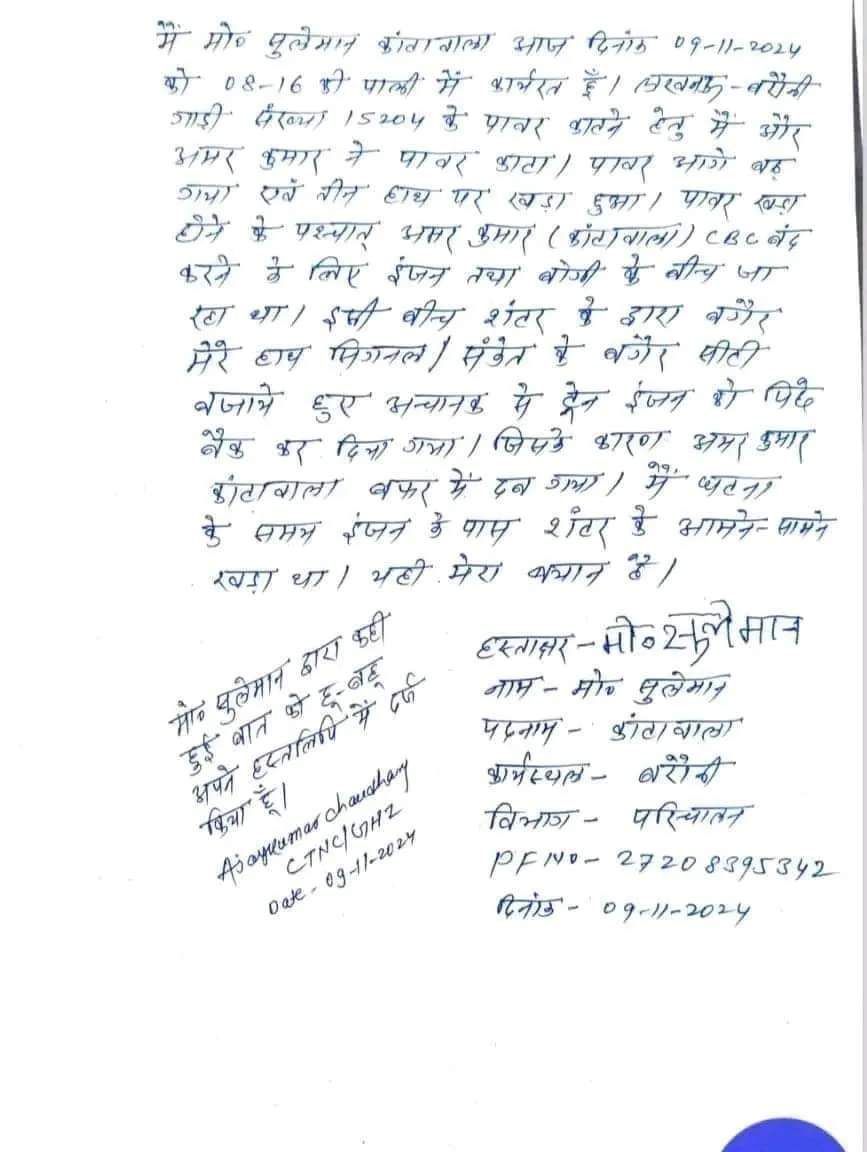 मैं मो० सुलेमान कांटावाला आज दिनांक 09-11-2024
को 08-16 की पाली में कार्यरत हूँ। लखनऊ-बरौनी
गाड़ी संख्या 15204 के पावर काटने हेतु मैं और
अमर कुमार ने पावर काटा। पावर आगे बढ़
गया एवं तीन हाथ पर खड़ा हुआ। पावर खड़ा
होने के पश्चात् अमर कुमार (कांटावाला) CBC बंद
करने के लिए इंजन तथा बोगी के बीच जा
रहा था। इसी बीच शंटर के द्वारा बगैर
मेरे हाथ सिगनल/संकेत के बगैर सीटी
बजाये हुए अचानक से ट्रेन इंजन को पिछे
बैक कर दिया गया। जिसके कारण अमर कुमार
कांटावाला बफर में दब गया। मैं घटना
के समय इंजन के पास शंटर के आमने-सामने
खड़ा था। यही मेरा बयान है।
हस्ताक्षर - मो० सुलेमान
नाम - मो० सुलेमान
पदनाम - कांटावाला
कार्यस्थल - बरौनी
विभाग - परिचालन
PF NO - 27208395342
दिनांक - 09-11-2024
मो० सुलेमान द्वारा कही
हुई बात को हू-बहू
अपने हस्तलिपि में दर्ज
किया हूँ।
Ajay Kumar Chaudhary
CTNC/GHZ
Date - 09-11-2024